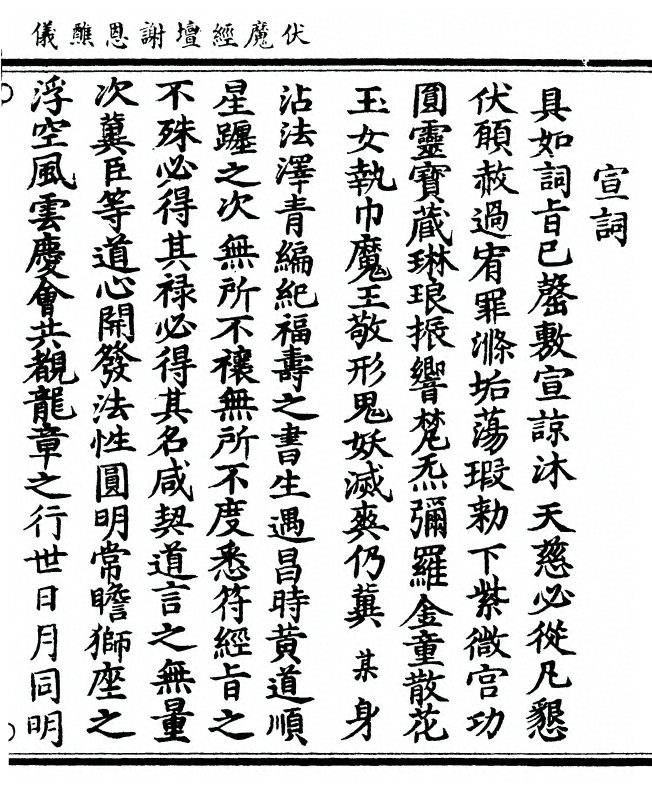 伏魔經壇謝恩醮儀
宣詞
具如詞旨已罄敷宣諒沐天慈必從凡懇
伏願赦過宥罪滌垢蕩瑕勑下紫微宫功
圓靈寳蔵琳琅振響梵炁彌羅金童散花
玉女執巾魔王敬形鬼妖滅爽仍蓂某身
沾法澤青編紀福壽之書生遇昌時黄道順
星躔之次無所不禳無所不度悉符經旨之
不殊必得其禄必得其名咸契道言之無量
次蓂臣等道心開發法性圓明常瞻獅座之
浮空風雲慶會共覩龍章之行世日月同明